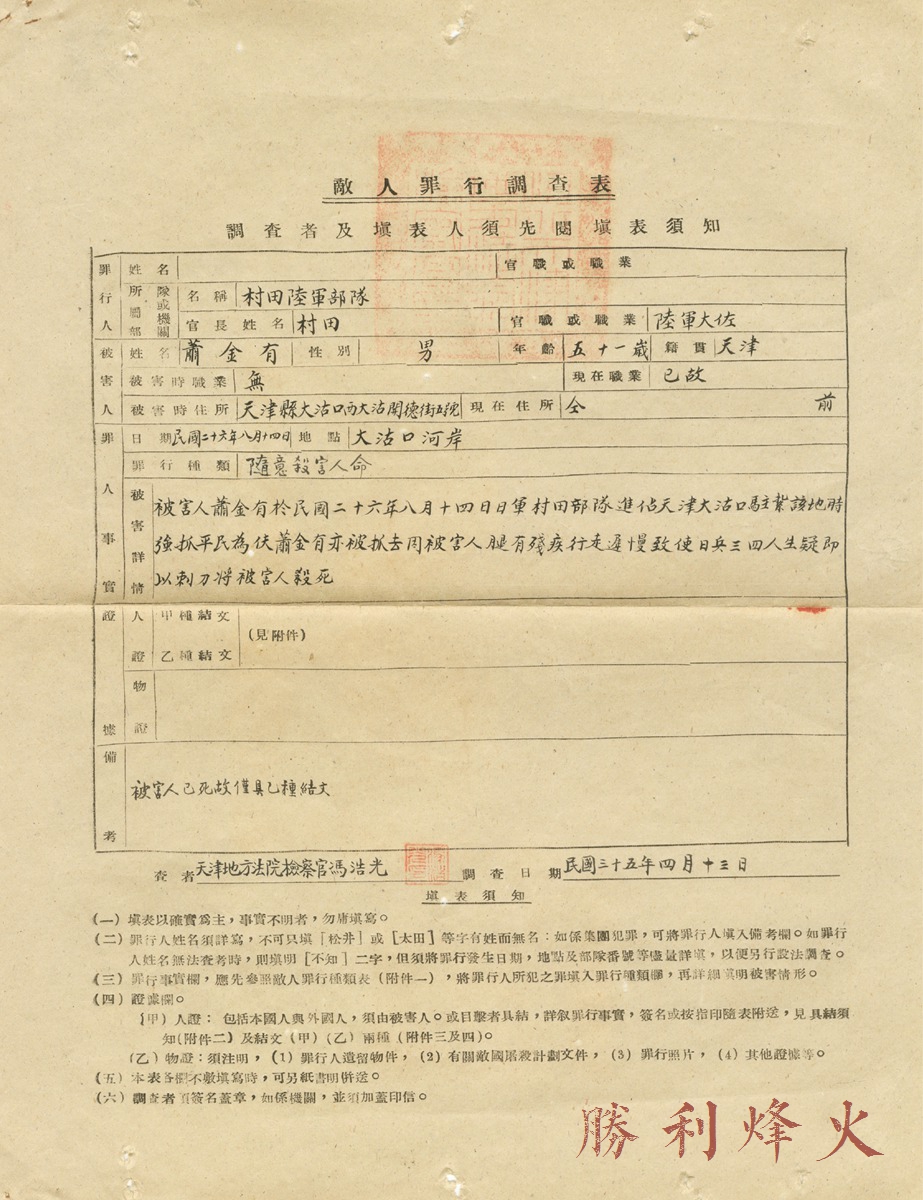 敵人罪行調查表
調查者及塡表人須先閱塡表須知
罪行人 姓名 官職或職業
所屬部隊或機關 名稱 村田陸軍部隊
官長姓名 村田 官職或職業 陸軍大佐
被害人 姓名 蕭金有 性別 男 年齡 五十一歲 籍貫 天津
被害時職業 無 現在職業 已故
被害時住所 天津縣大沽口西大沽開德街五號 現在住所 仝前
罪人事實 日期 民國二十六年八月十四日 地點 大沽口河岸
罪行種類 隨意殺害人命
被害詳情 被害人蕭金有於民國二十六年八月十四日日軍村田部隊進佔天津大沽口駐紮該地時
強抓平民為伕蕭金有亦被抓去因被害人腿有殘疾行走遲慢致使日兵三四人生疑即
以刺刀將被害人殺死
證據 人證 甲種結文
(見附件)
乙種結文
物證
備考 被害人已死故僅具乙種結文
查者 天津地方法院檢察官馮浩光 調查日期 民國三十五年四月十三日
塡表須知
(一) 塡表以確實爲主,事實不明者,勿庸塡寫。
(二) 罪行人姓名須詳寫,不可只塡[松井]或[太田]等字有姓而無名:如係集團犯罪,可將罪行人塡入備考欄。如罪行
人姓名無法查考時,則塡明[不知]二字,但須將罪行發生日期,地點及部隊番號等儘量詳塡,以便另行設法調查。
(三) 罪行事實欄,應先參照敵人罪行種類表(附件一),將罪行人所犯之罪塡入罪行種類欄,再詳細塡明被害情形。
(四) 證據欄。
(甲) 人證: 包括本國人與外國人,須由被害人。或目擊者具結,詳叙罪行事實,簽名或按指印隨表附送,見具結須
知(附件二)及結文(甲)(乙)兩種(附件三及四)。
(乙) 物證:須注明,(1) 罪行人遺留物件,(2) 有關敵國屠殺計劃文件,(3) 罪行照片,(4) 其他證據等。
(五) 本表各欄不敷塡寫時,可另紙書明併送。
(六) 調查者須簽名蓋章,如係機關,並須加蓋印信。
勝利烽火